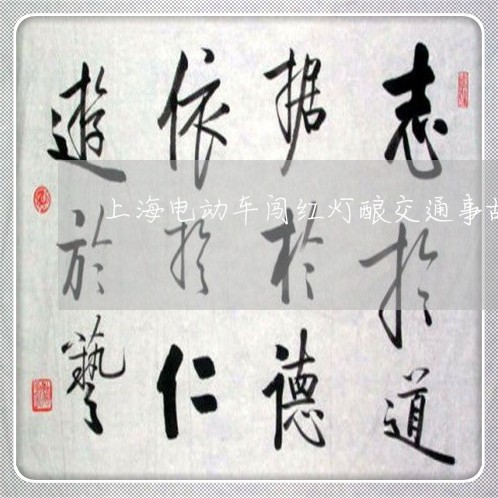 志於道
据於德
依於仁
遊於藝
上海电动车闯红灯酿交通事故